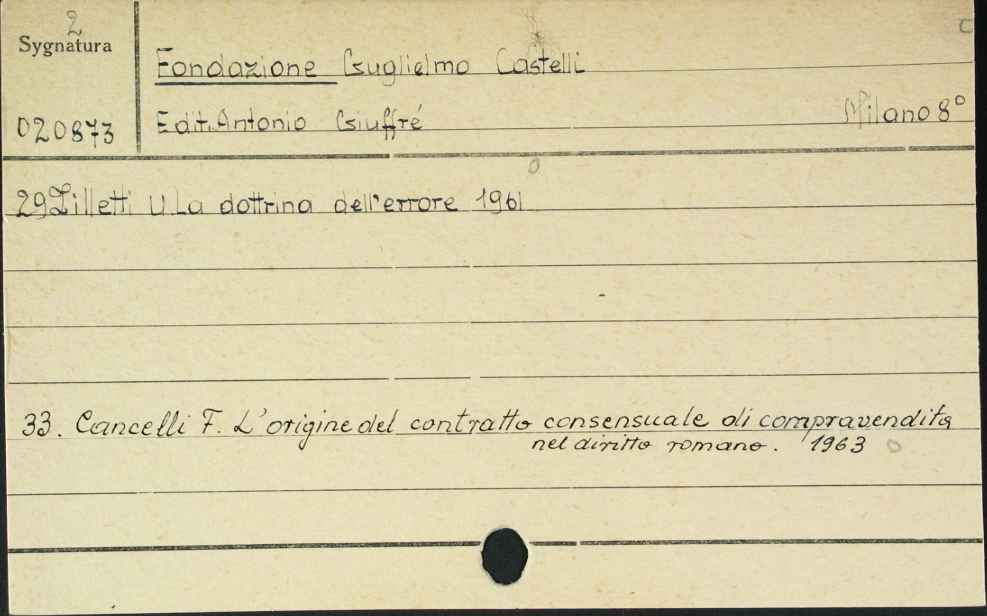 2
Sygnatura
C
Fondazione Guglielmo Castelli
020873
Edit. Antonio Giuffré Milano 8°
29 Zilletti U La dottrina dell'errore 1961
33. Cancelli F. L'origine del contratto consensuale di compravendita
nel diritto romano. 1963